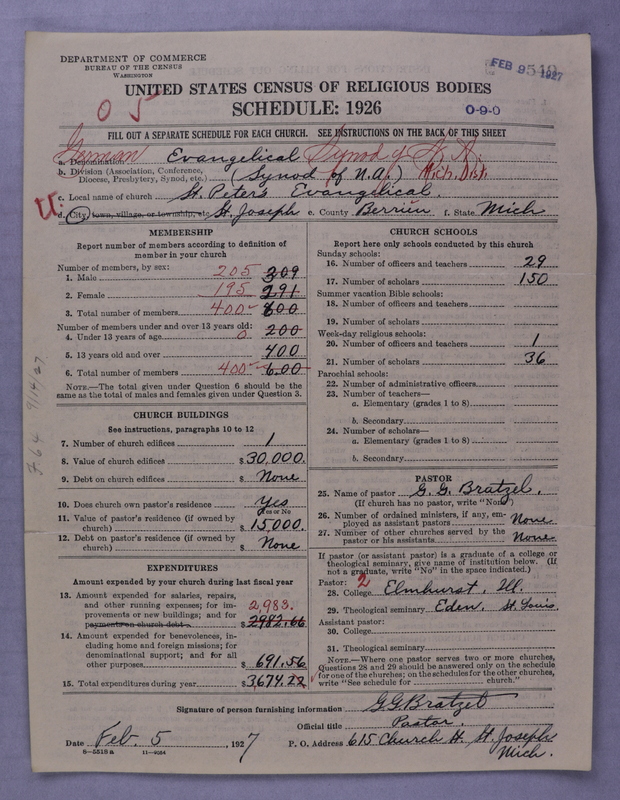 DEPARTMENT OF COMMERCE
BUREAU OF THE CENSUS
WASHINGTON
FEB 9 1927
UNITED STATES CENSUS OF RELIGIOUS BODIES
SCHEDULE: 1926
0 5
0-9-0
FILL OUT A SEPARATE SCHEDULE FOR EACH CHURCH. SEE INSTRUCTIONS ON THE BACK OF THIS SHEET
German
a. Denomination Evangelical Synod of N. A.
b. Division (Association, Conference, Diocese, Presbytery, Synod, etc.) (Synod of N.A.) Mich. Dist.
c. Local name of church St. Peter's Evangelical.
U.
d. City, town, village, or township, etc. St. Joseph e. County Berrien f. State Mich
MEMBERSHIP
Report number of members according to definition of
member in your church
Number of members, by sex:
1. Male 205 309
2. Female 195 291
3. Total number of members 400 600
Number of members under and over 13 years old:
4. Under 13 years of age 0 200
5. 13 years old and over 400
6. Total number of members 400 600
NOTE.—The total given under Question 6 should be
same as the total of males and females given under Question 3.
CHURCH BUILDINGS
See instructions, paragraphs 10 to 12
7. Number of church edifices 1
8. Value of church edifices $30,000.
9. Debt on church edifices $ None
10. Does church own pastor's residence? Yes
Yes or No
11. Value of pastor's residence (if owned by
church) $15,000.
12. Debt on pastor's residence (if owned by
church) $ None
EXPENDITURES
Amount expended by your church during last fiscal year
13. Amount expended for salaries, repairs,
and other running expenses; for im-
provements or new buildings; and for
payments on church debt $ 2,983. 2982.66
14. Amount expended for benevolences, in-
cluding home and foreign missions; for
denominational support; and for all
other purposes $691.56
15. Total expenditures during year $3,674.22
CHURCH SCHOOLS
Report here only schools conducted by this church
Sunday schools:
16. Number of officers and teachers 29
17. Number of scholars 150
Summer vacation Bible schools:
18. Number of officers and teachers
19. Number of scholars
Week-day religious schools:
20. Number of officers and teachers 1
21. Number of scholars 36
Parochial schools:
22. Number of administrative officers
23. Number of teachers—
a. Elementary (grades 1 to 8)
b. Secondary
24. Number of scholars—
a. Elementary (grades 1 to 8)
b. Secondary
PASTOR
25. Name of pastor G. G. Bratzel.
(If church has no pastor, write "None")
26. Number of ordained ministers, if any, em-
ployed as assistant pastors None
27. Number of other churches served by the
pastor or his assistants None
If pastor (or assistant pastor) is a graduate of a college or
theological seminary, give name of institution below. (If
not a graduate, write "No" in the space indicated.)
Pastor: 2
28. College Elmhurst, Ill.
29. Theological seminary Eden, St. Louis
Assistant pastor:
30. College
31. Theological seminary
NOTE.—Where one pastor serves two or more churches,
Questions 28 and 29 should be answered only on the schedule
for one of the churches; on the schedules for the other churches,
write "See schedule for church."
Signature of person furnishing information G G Bratzel
Official title Pastor.
Date Feb. 5, 1927 P. O. Address 615 Church St. St. Joseph
Mich.
8—5518 a 11—9264